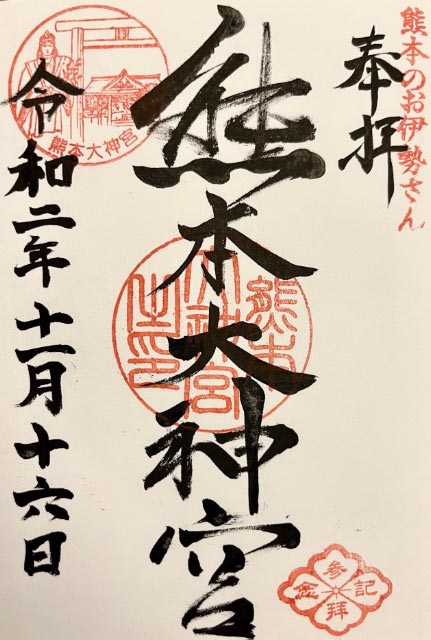 熊本のお伊勢さん
奉拝
熊本大神宮
熊本
大神宮
之印
熊本大神宮
令和二年十一月十六日
参拝
記念